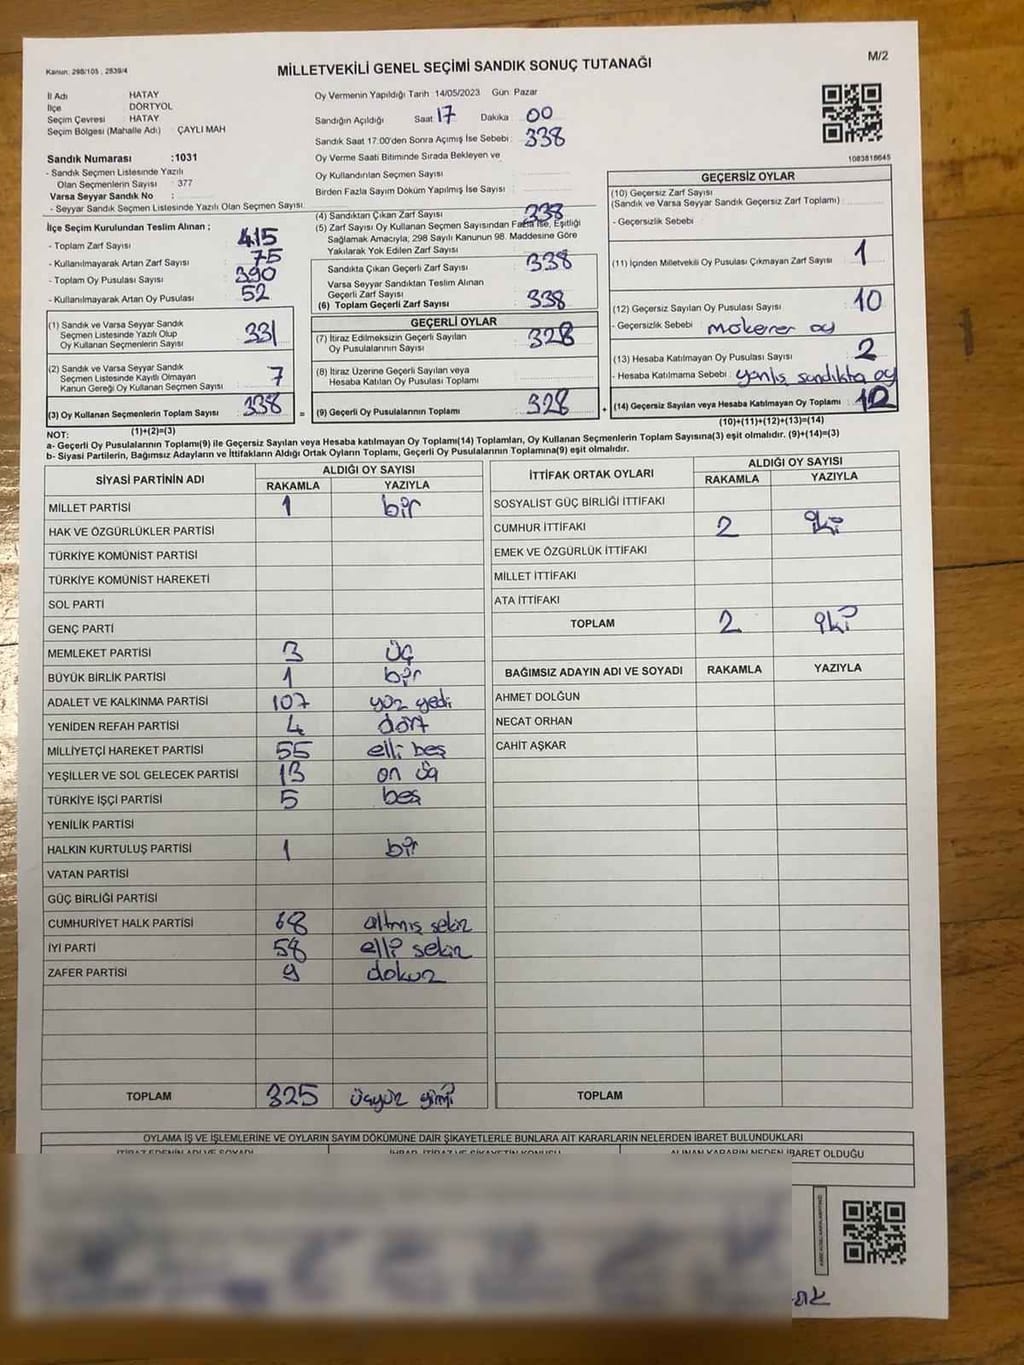 Kanun: 298/105 , 2839/4
MİLLETVEKİLİ GENEL SEÇİMİ SANDIK SONUÇ TUTANAĞI
M/2
İl Adı HATAY
İlçe DÖRTYOL
Seçim Çevresi HATAY
Seçim Bölgesi (Mahalle Adı) ÇAYLI MAH
Sandık Numarası :1031
- Sandık Seçmen Listesinde Yazılı
Olan Seçmenlerin Sayısı : 377
Varsa Seyyar Sandık No :
- Seyyar Sandık Seçmen Listesinde Yazılı Olan Seçmen Sayısı:
Oy Vermenin Yapıldığı Tarih :14/05/2023 Gün: Pazar
Sandığın Açıldığı Saat 17 Dakika 00
Sandık Saat 17:00'den Sonra Açımış İse Sebebi: 338
Oy Verme Saati Bitiminde Sırada Bekleyen ve
Oy Kullandırılan Seçmen Sayısı
Birden Fazla Sayım Döküm Yapılmış İse Sayısı
1083818645
İlçe Seçim Kurulundan Teslim Alınan ;
- Toplam Zarf Sayısı 415
- Kullanılmayarak Artan Zarf Sayısı 75
- Toplam Oy Pusulası Sayısı 390
- Kullanılmayarak Artan Oy Pusulası 52
(1) Sandık ve Varsa Seyyar Sandık
Seçmen Listesinde Yazılı Olup
Oy Kullanan Seçmenlerin Sayısı 331
(2) Sandık ve Varsa Seyyar Sandık
Seçmen Listesinde Kayıtlı Olmayan
Kanun Gereği Oy Kullanan Seçmen Sayısı 7
(3) Oy Kullanan Seçmenlerin Toplam Sayısı 338
(1)+(2)=(3)
(4) Sandıktan Çıkan Zarf Sayısı 338
(5) Zarf Sayısı Oy Kullanan Seçmen Sayısından Fazla İse, Eşitliği
Sağlamak Amacıyla, 298 Sayılı Kanunun 98. Maddesine Göre
Yakılarak Yok Edilen Zarf Sayısı
Sandıkta Çıkan Geçerli Zarf Sayısı 338
Varsa Seyyar Sandıktan Teslim Alınan
Geçerli Zarf Sayısı
(6) Toplam Geçerli Zarf Sayısı 338
GEÇERLİ OYLAR
(7) İtiraz Edilmeksizin Geçerli Sayılan
Oy Pusulalarının Sayısı 328
(8) İtiraz Üzerine Geçerli Sayılan veya
Hesaba Katılan Oy Pusulası Toplamı
= (9) Geçerli Oy Pusulalarının Toplamı 328 +
GEÇERSİZ OYLAR
(10) Geçersiz Zarf Sayısı
(Sandık ve Varsa Seyyar Sandık Geçersiz Zarf Toplamı)
- Geçersizlik Sebebi
(11) İçinden Milletvekili Oy Pusulası Çıkmayan Zarf Sayısı 1
(12) Geçersiz Sayılan Oy Pusulası Sayısı 10
- Geçersizlik Sebebi mökerer oy
(13) Hesaba Katılmayan Oy Pusulası Sayısı 2
- Hesaba Katılmama Sebebi yanlış sandıkta oy
(14) Geçersiz Sayılan veya Hesaba Katılmayan Oy Toplamı
(10)+(11)+(12)+(13)=(14)
NOT:
a- Geçerli Oy Pusulalarının Toplamı(9) ile Geçersiz Sayılan veya Hesaba katılmayan Oy Toplamı(14) Toplamları, Oy Kullanan Seçmenlerin Toplam Sayısına(3) eşit olmalıdır. (9)+(14)=(3)
b- Siyasi Partilerin, Bağımsız Adayların ve İttifakların Aldığı Ortak Oyların Toplamı, Geçerli Oy Pusulalarının Toplamına(9) eşit olmalıdır.
SİYASİ PARTİNİN ADI ALDIĞI OY SAYISI
RAKAMLA YAZIYLA
MİLLET PARTİSİ 1 bir
HAK VE ÖZGÜRLÜKLER PARTİSİ
TÜRKİYE KOMÜNİST PARTİSİ
TÜRKİYE KOMÜNİST HAREKETİ
SOL PARTİ
GENÇ PARTİ
MEMLEKET PARTİSİ 3 üç
BÜYÜK BİRLİK PARTİSİ 1 bir
ADALET VE KALKINMA PARTİSİ 107 yüz yedi
YENİDEN REFAH PARTİSİ 4 dört
MİLLİYETÇİ HAREKET PARTİSİ 55 elli beş
YEŞİLLER VE SOL GELECEK PARTİSİ 13 on üç
TÜRKİYE İŞÇİ PARTİSİ 5 beş
YENİLİK PARTİSİ
HALKIN KURTULUŞ PARTİSİ 1 bir
VATAN PARTİSİ
GÜÇ BİRLİĞİ PARTİSİ
CUMHURİYET HALK PARTİSİ 68 altmış sekiz
İYİ PARTİ 58 elli sekiz
ZAFER PARTİSİ 9 dokuz
TOPLAM 325 üçyüz
İTTİFAK ORTAK OYLARI ALDIĞI OY SAYISI
RAKAMLA YAZIYLA
SOSYALİST GÜÇ BİRLİĞİ İTTİFAKI
CUMHUR İTTİFAKI 2 iki
EMEK VE ÖZGÜRLÜK İTTİFAKI
MİLLET İTTİFAKI
ATA İTTİFAKI
TOPLAM 2 iki
BAĞIMSIZ ADAYIN ADI VE SOYADI RAKAMLA YAZIYLA
AHMET DOLĞUN
NECAT ORHAN
CAHİT AŞKAR
TOPLAM
OYLAMA İŞ VE İŞLEMLERİNE VE OYLARIN SAYIM DÖKÜMÜNE DAİR ŞİKAYETLERLE BUNLARA AİT KARARLARIN NELERDEN İBARET BULUNDUKLARI
ALINAN KARARIN NEDEN İBARET OLDUĞU